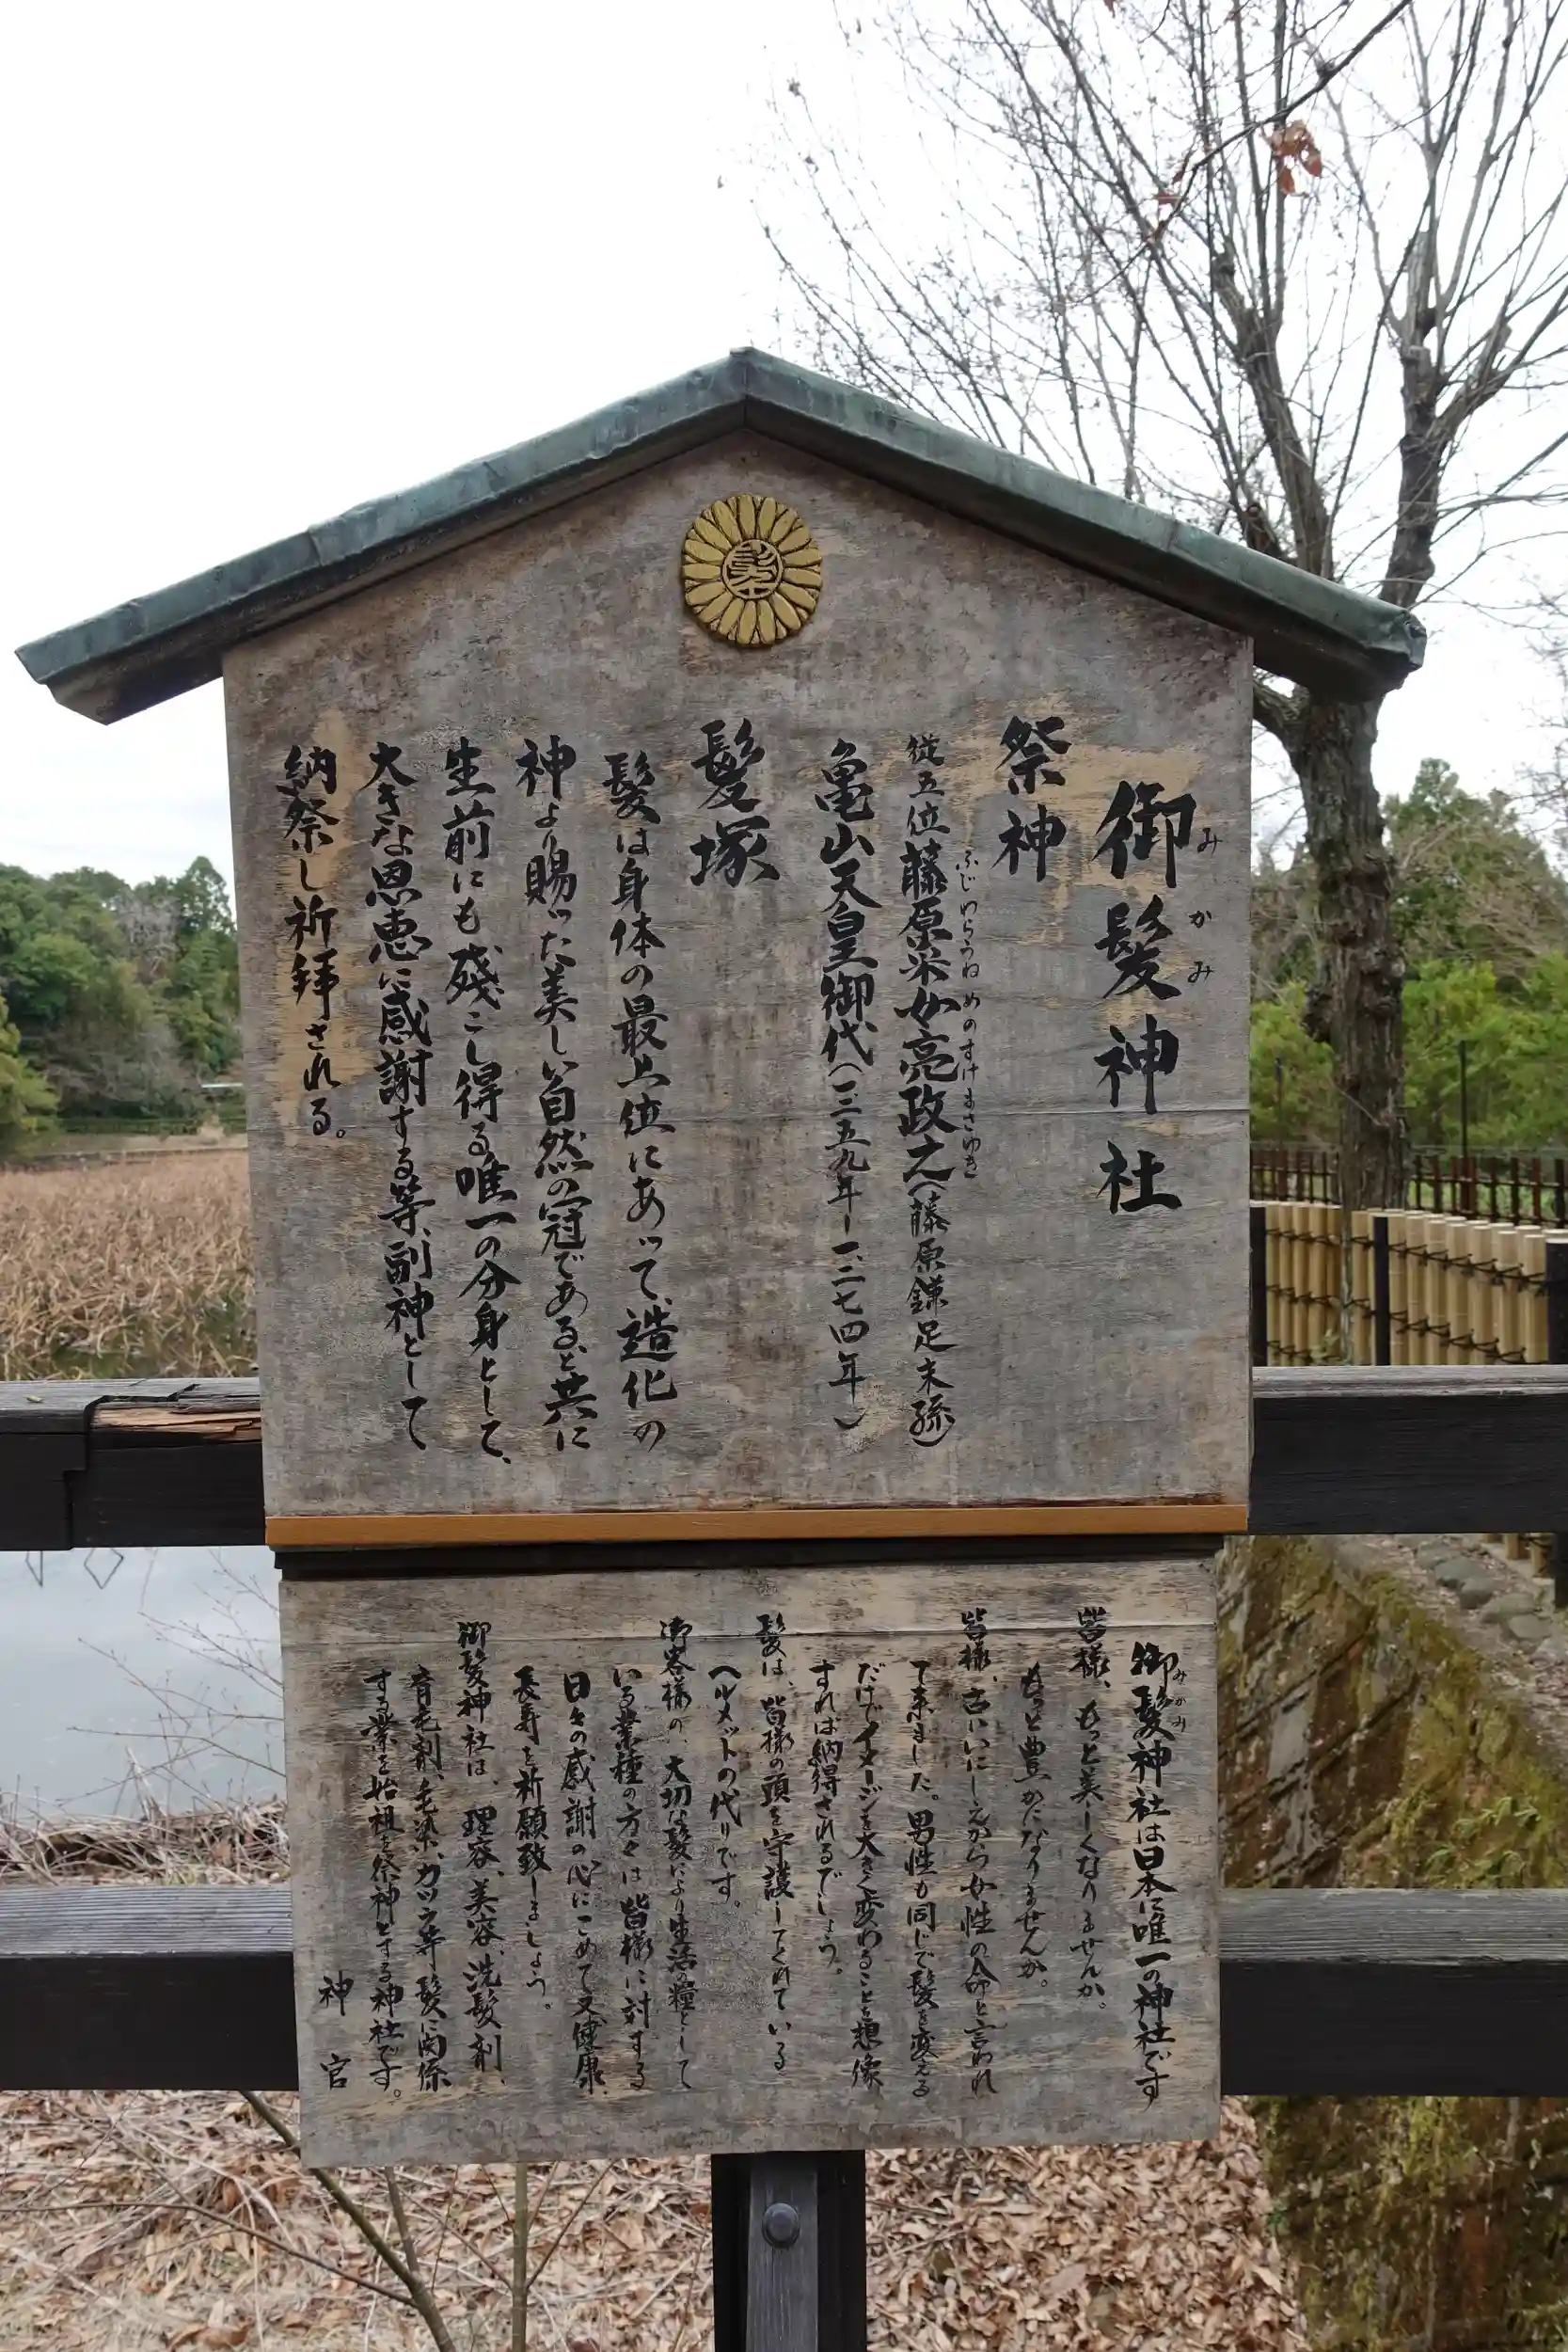 御髪神社
みかみ
祭神
従五位藤原采女亮政之(藤原鎌足末孫)
ふじわらうねめのすけまさゆき
亀山天皇御代(一二五九年ー一二七四年)
髪塚
髪は身体の最上位にあって、造化の
神より賜った美しい自然の冠であると共に
生前にも残こし得る唯一の分身として、
大きな恩恵に感謝する等、副神として
納祭し祈拝される。
御髪神社は日本に唯一の神社です
みかみ
皆様、もっと美しくなりませんか。
もっと豊かになりませんか。
皆様、古いいにしえから女性の命と言われ
て来ました。男性も同じで髪を変える
だけでイメージを大きく変わることを想像
すれば納得されるでしょう。
髪は、皆様の頭を守護してくれている
ヘルメットの代りです。
御客様の大切な髪により生活の糧として
いる業種の方々は皆様に対する
日々の感謝の心にこめて又健康、
長寿を祈願致しましょう。
御髪神社は、理容、美容、洗髪剤、
育毛剤、毛染、カツラ等髪に関係
する業を始祖を祭神とする神社です。
神官